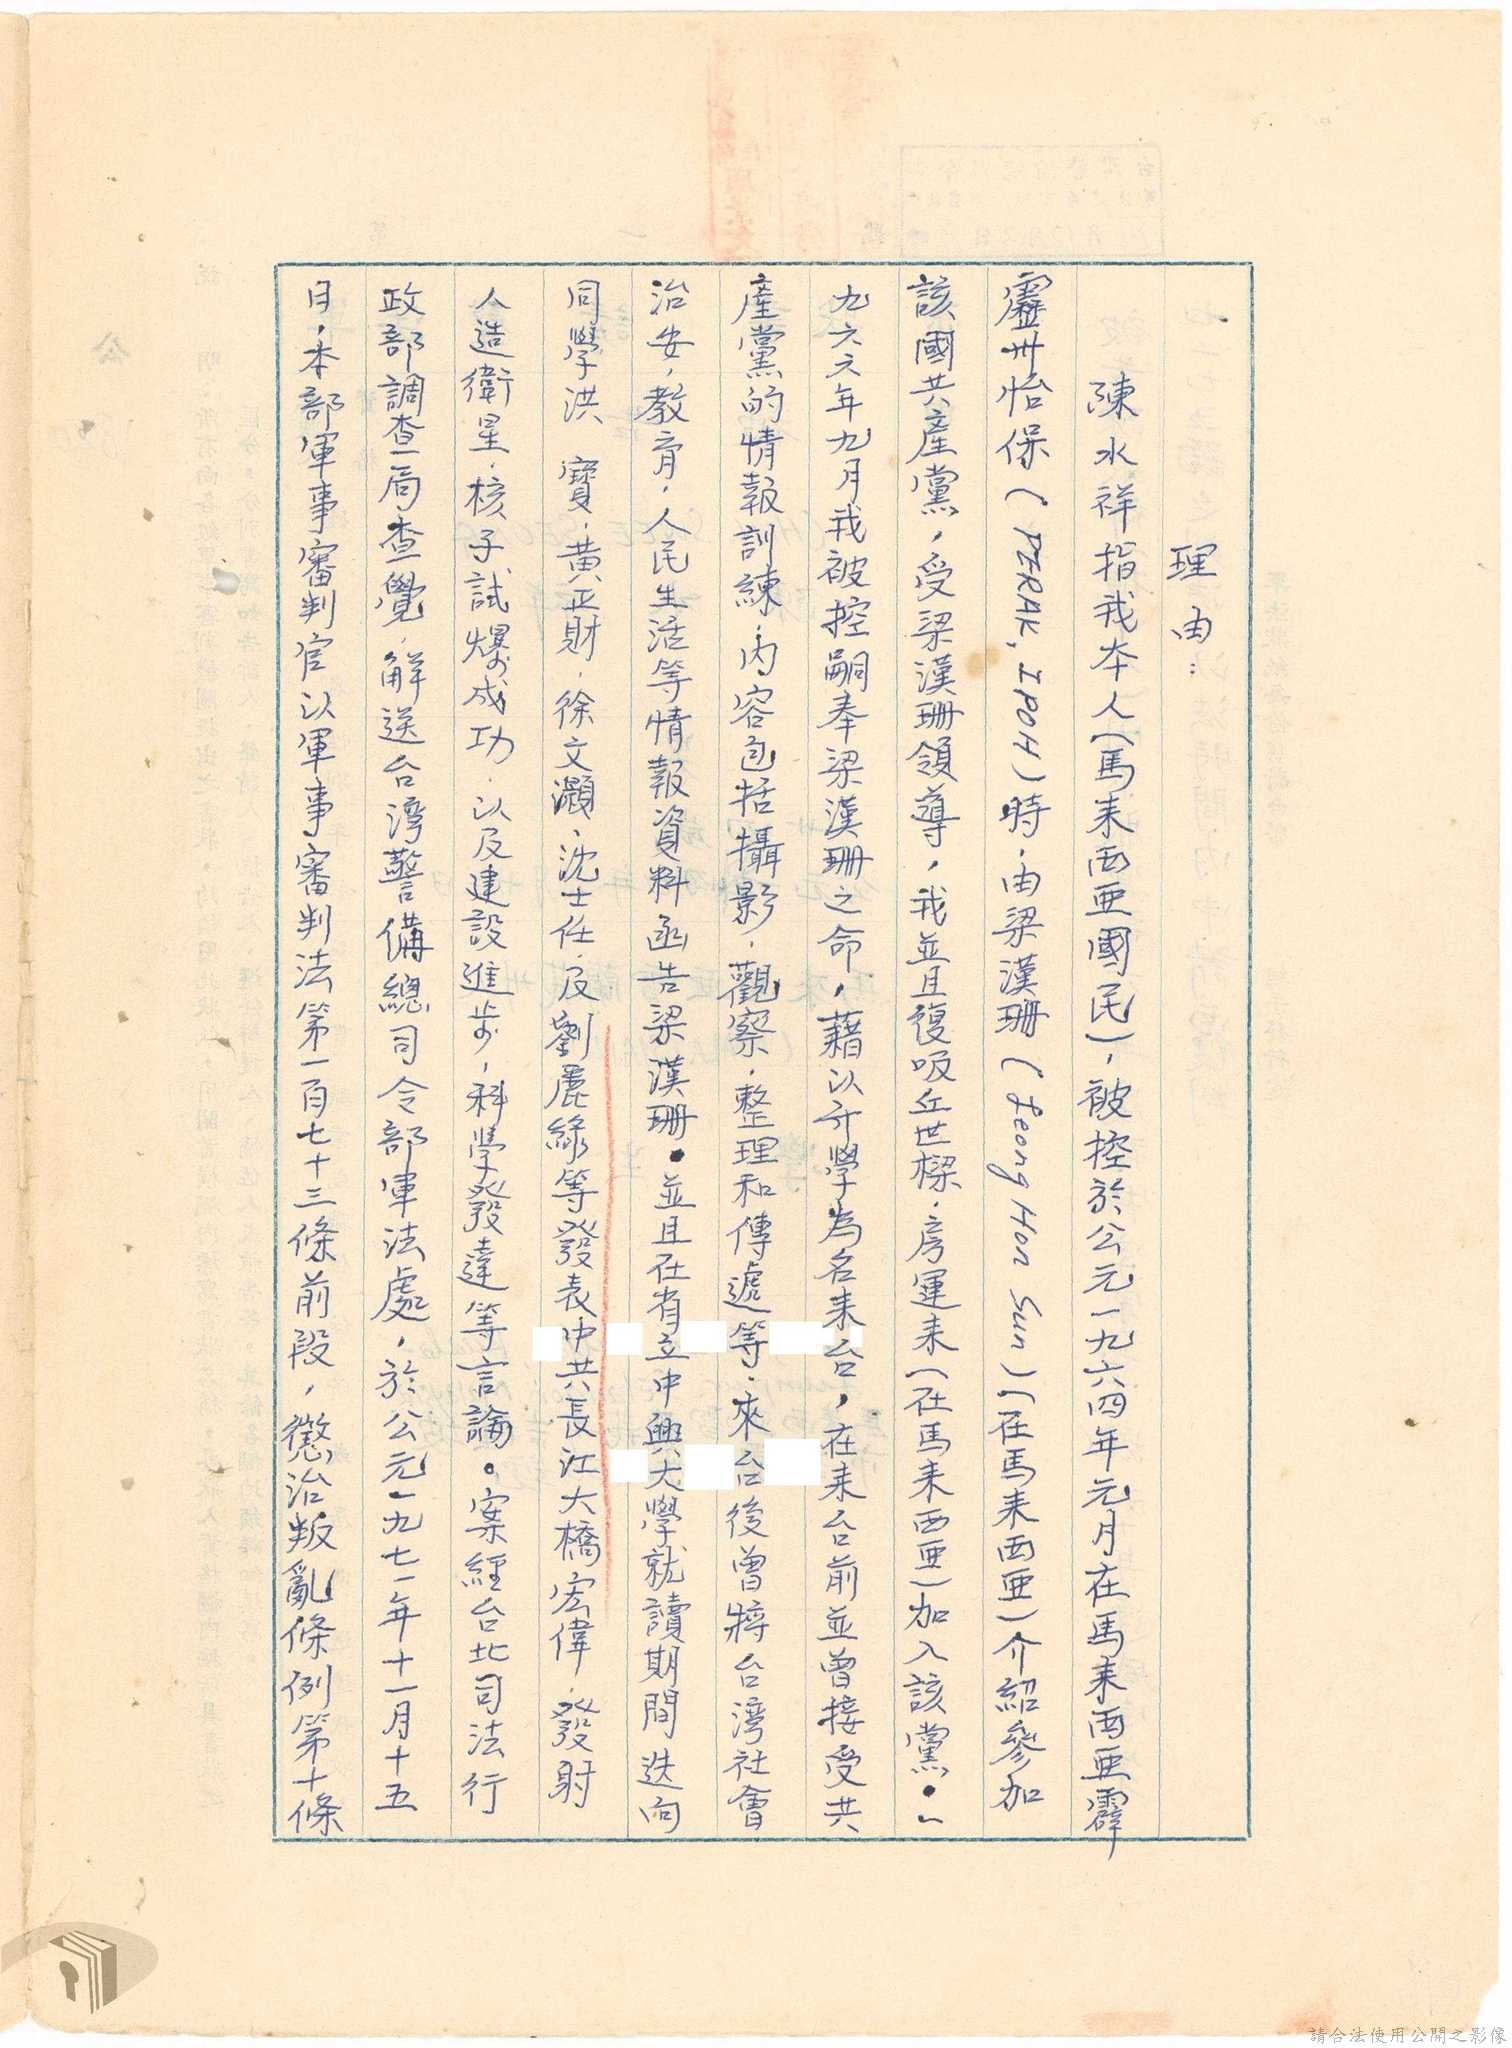 理由：
陳水祥指我本人（馬來西亞國民），被控於公元一九六四年元月在馬來西亞霹
靂州怡保（PERAK, IPOH）時，由梁漢珊（Leong Hon Sun）（在馬來西亞）介紹參加
該國共產黨，受梁漢珊領導，我並且復吸丘世樑、房運來（在馬來西亞）加入該黨。一
九六六年九月我被控嗣奉梁漢珊之命，藉以升學為名來台，在來台前並曾接受共
產黨的情報訓練，內容包括攝影、觀察、整理和傳遞等。來台後曾將台灣社會
治安，教育，人民生活等情報資料函告梁漢珊。並且在省立中興大學就讀期間迭向
同學洪 寶、黃正財、徐文灝、沈士任、及劉麗綠等發表中共長江大橋宏偉，發射
人造衛星，核子試爆成功，以及建設進步，科學發達等言論。案經台北司法行
政部調查局查覺，解送台灣警備總司令部軍法處，於公元一九七一年十一月十五
日，本部軍事審判官以軍事審判法第一百七十三條前段，懲治叛亂條例第十條
請合法使用公開之影像